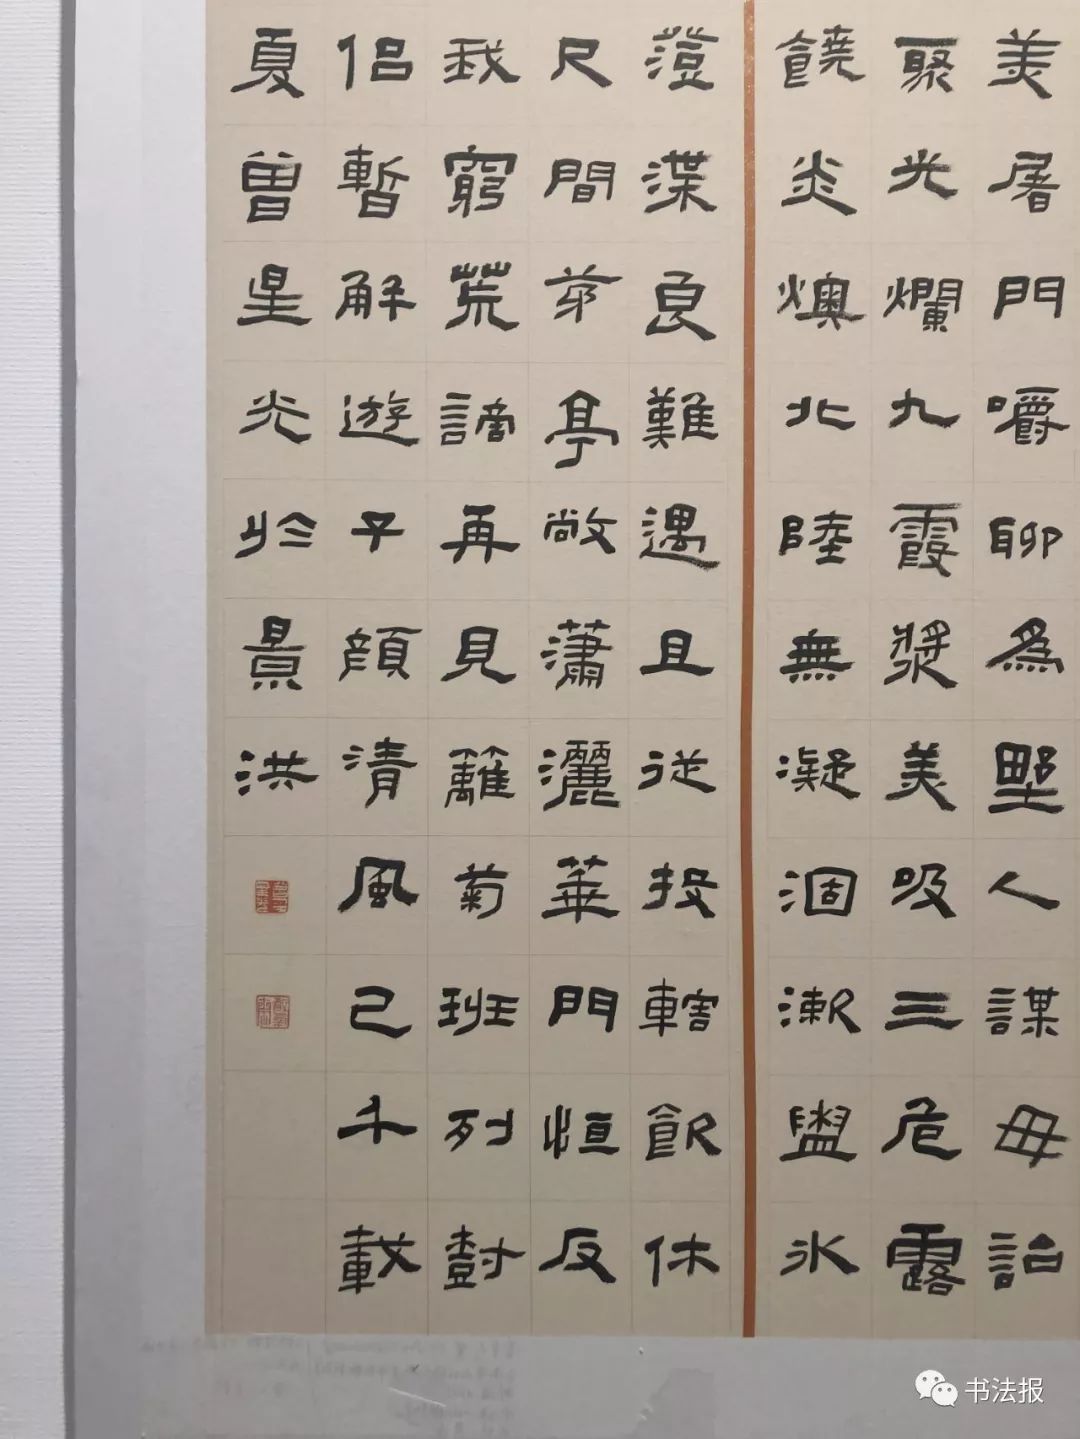 美屠門嚼聊為野人謀毋詒
聚光爛九霞漿美吸三危露
饒炎燠北陸無凝涸漱盥冰
澄渫良難遇且從投轄飲休
尺間茅亭敞瀟灑蓽門恒反
我窮荒謫再見籬菊班列封
侶暫解遊子顏清風已千載
夏曾星光於景洪
书法报